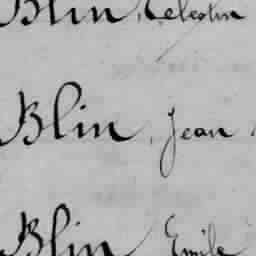 Blin, Célestin
Blin, Jean
Blin Emile